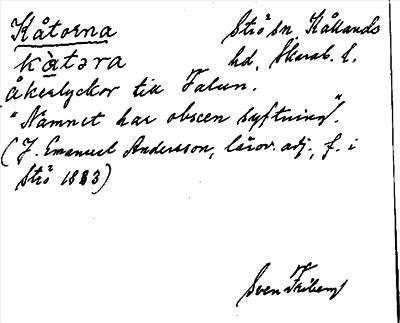 Kåtorna Strö sn Kållands
kàtəra hd, Skarab. l.
åkerlyckor till Falun.
"Namnet har obscen syftning".
(J. Emanuel Andersson, lärov. adj., f. i
Strö 1883)
Sven Friberg